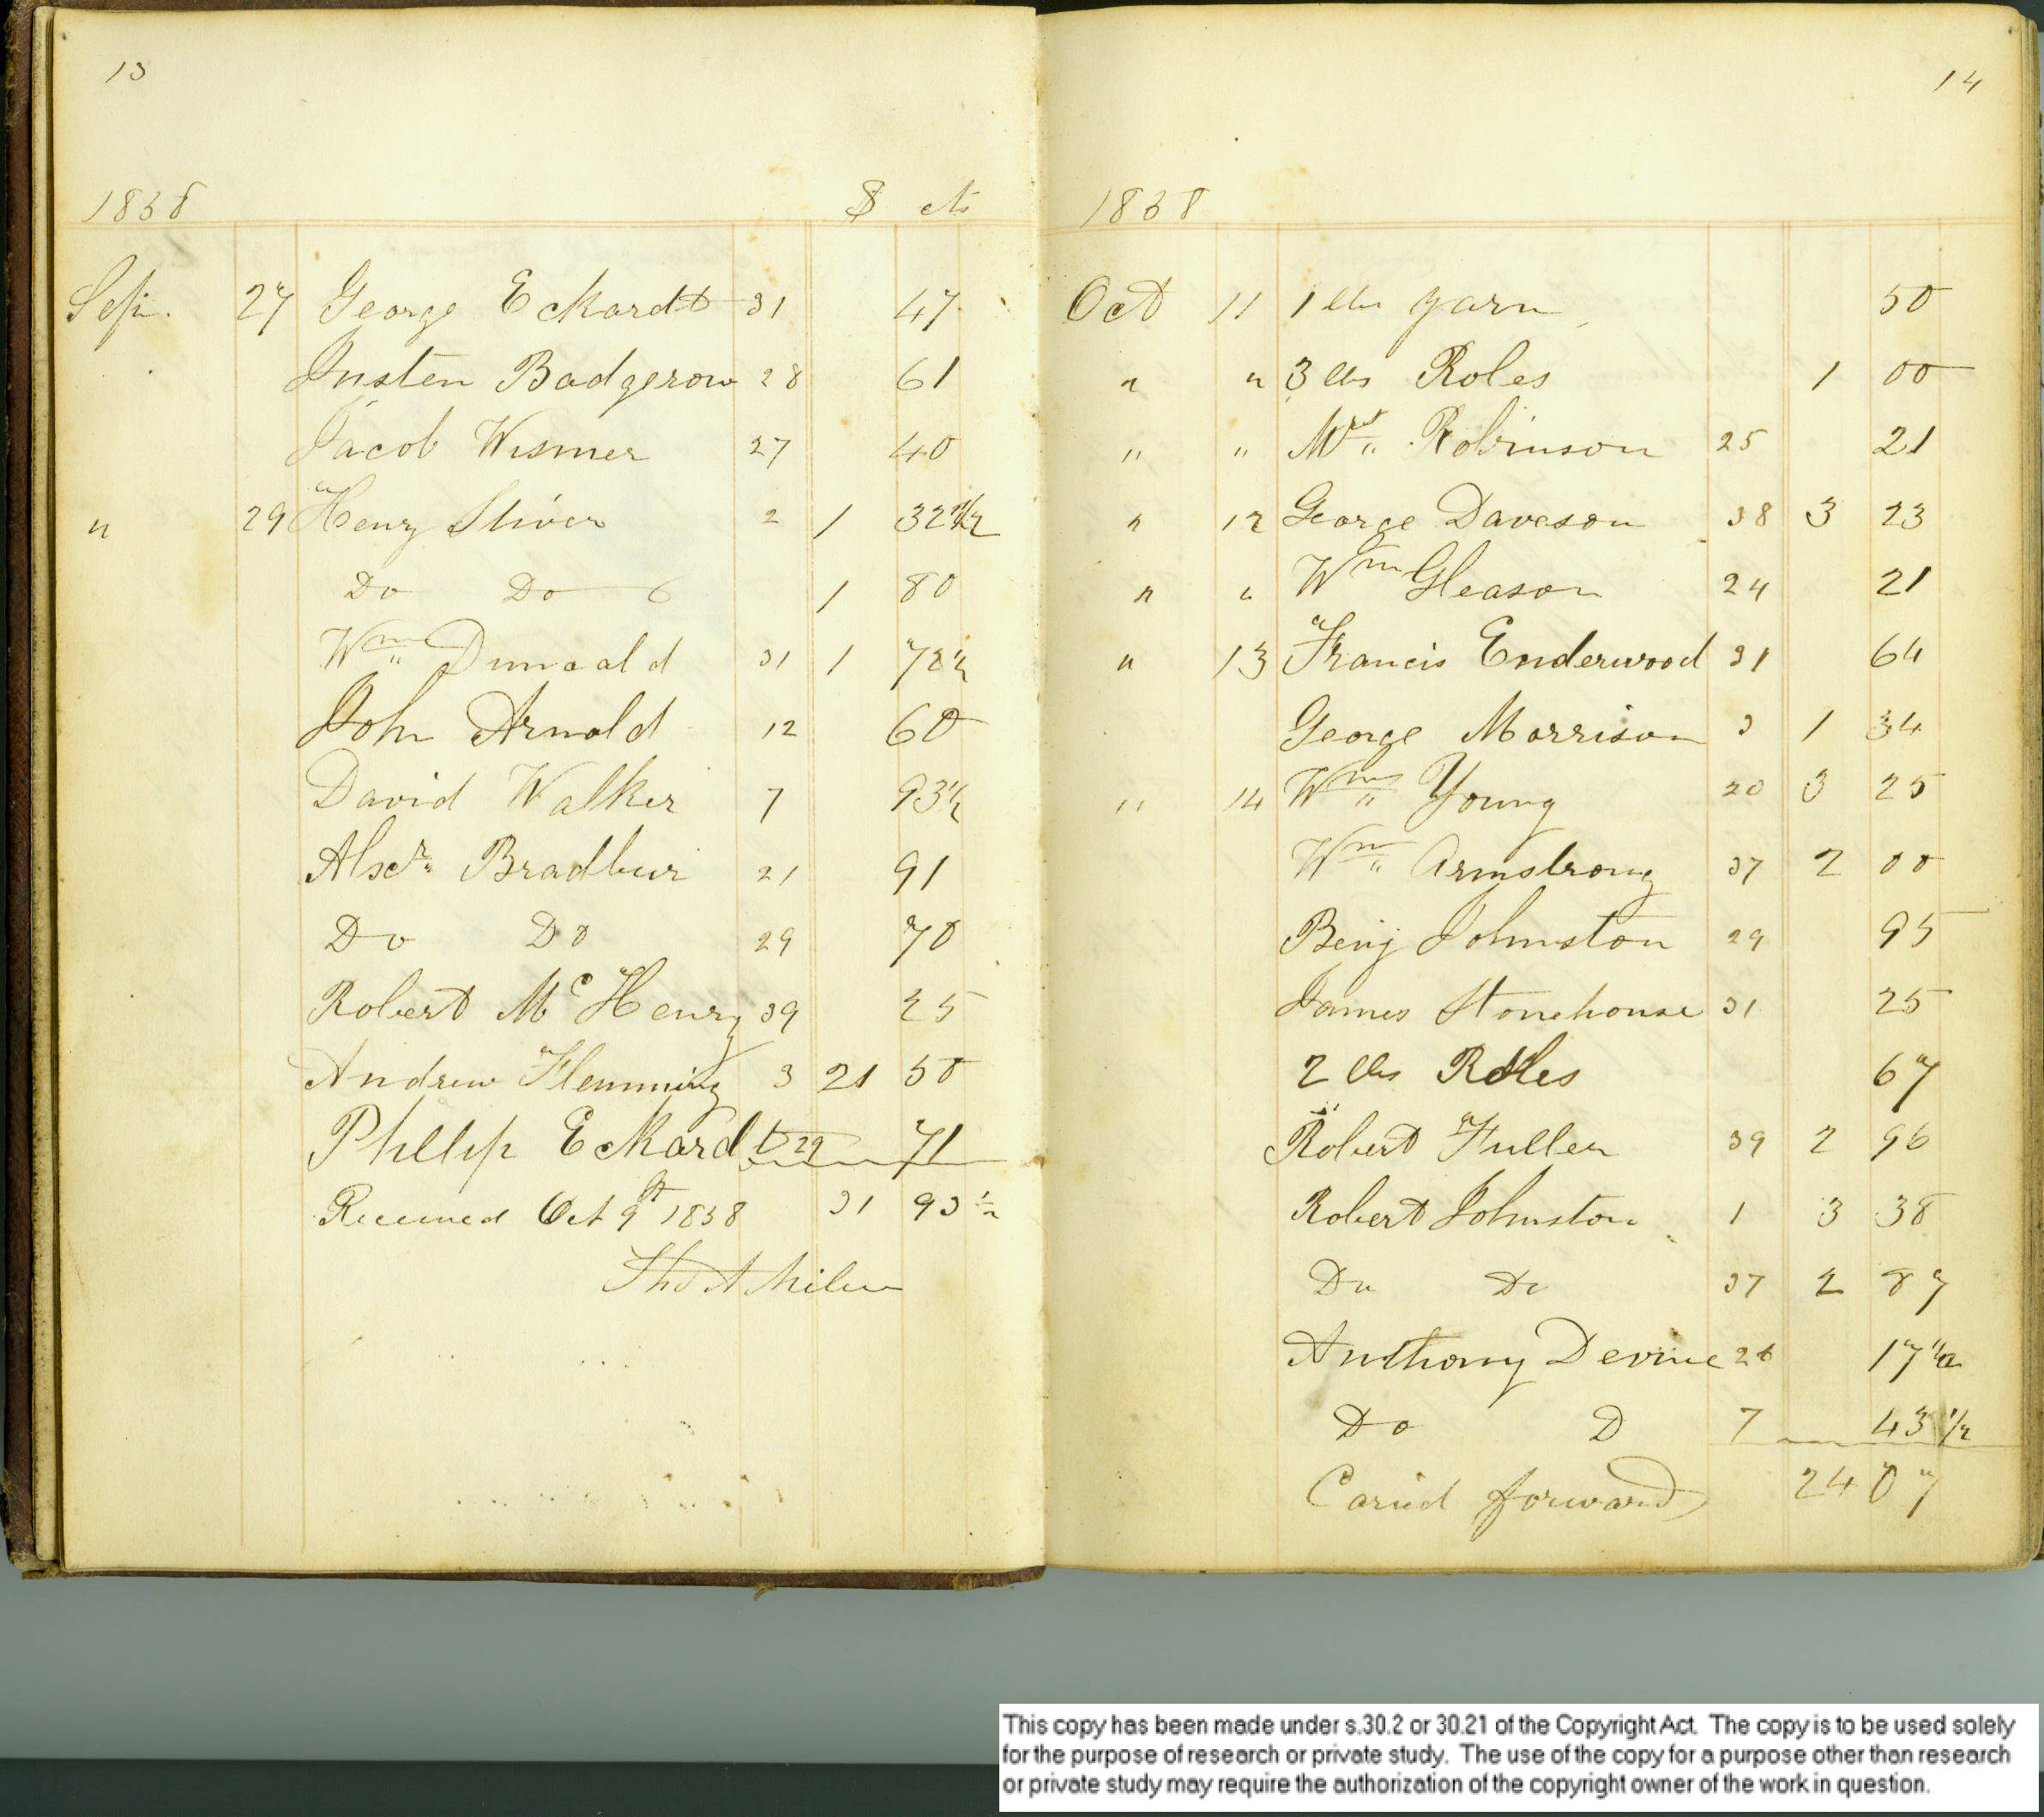 13
1838 $ cts
Sep. 27 George Eckardt 31 47
Justen Badgerow 28 61
Jacob Wismer 27 40
" 29 Henry Stiver 2 1 32 1/2
Do Do 6 1 80
Wm Dunoald 31 1 72 1/2
John Arnold 12 60
David Walker 7 93 1/2
Alxr Bradbur 21 91
Do Do 29 70
Robert McHenry 39 25
Andrew Flemming 3 21 50
Phillip Eckardt 29 71
Received Oct 9th 1838 31 93 1/2
14
1838
Oct 11 1 lbs yarn 50
" " 3 lbs Roles 1 00
" " Mrs Robinson 25 21
" 12 George Daveson 38 3 23
" " Wm Gleason 24 21
" 13 Francis Enderwood 31 64
George Morrison 3 1 34
" 14 Wm Young 20 3 25
Wm Armstrong 37 2 00
Benj Johnston 29 95
James Stonehouse 31 25
2 lbs Roles 67
Robert Fuller 39 2 96
Robert Johnston 1 3 38
Do Do 37 2 87
Anthony Devine 26 17 1/2
Do D 7 43 1/2
Caried forward 24 07
This copy has been made under s.30.2 or 30.21 of the Copyright Act. The copy is to be used solely
for the purpose of research or private study. The use of the copy for a purpose other than research
or private study may require the authorization of the copyright owner of the work in question.